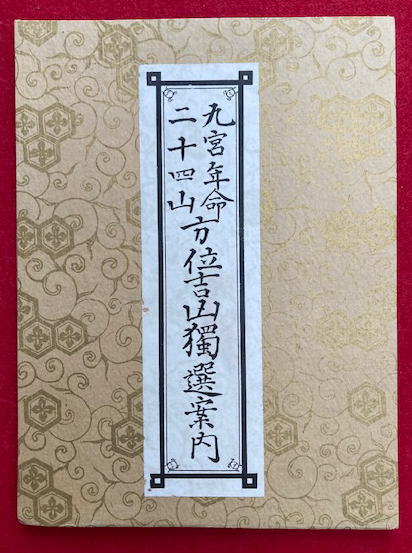 九宮年命
二十四山
方位吉凶獨選案内